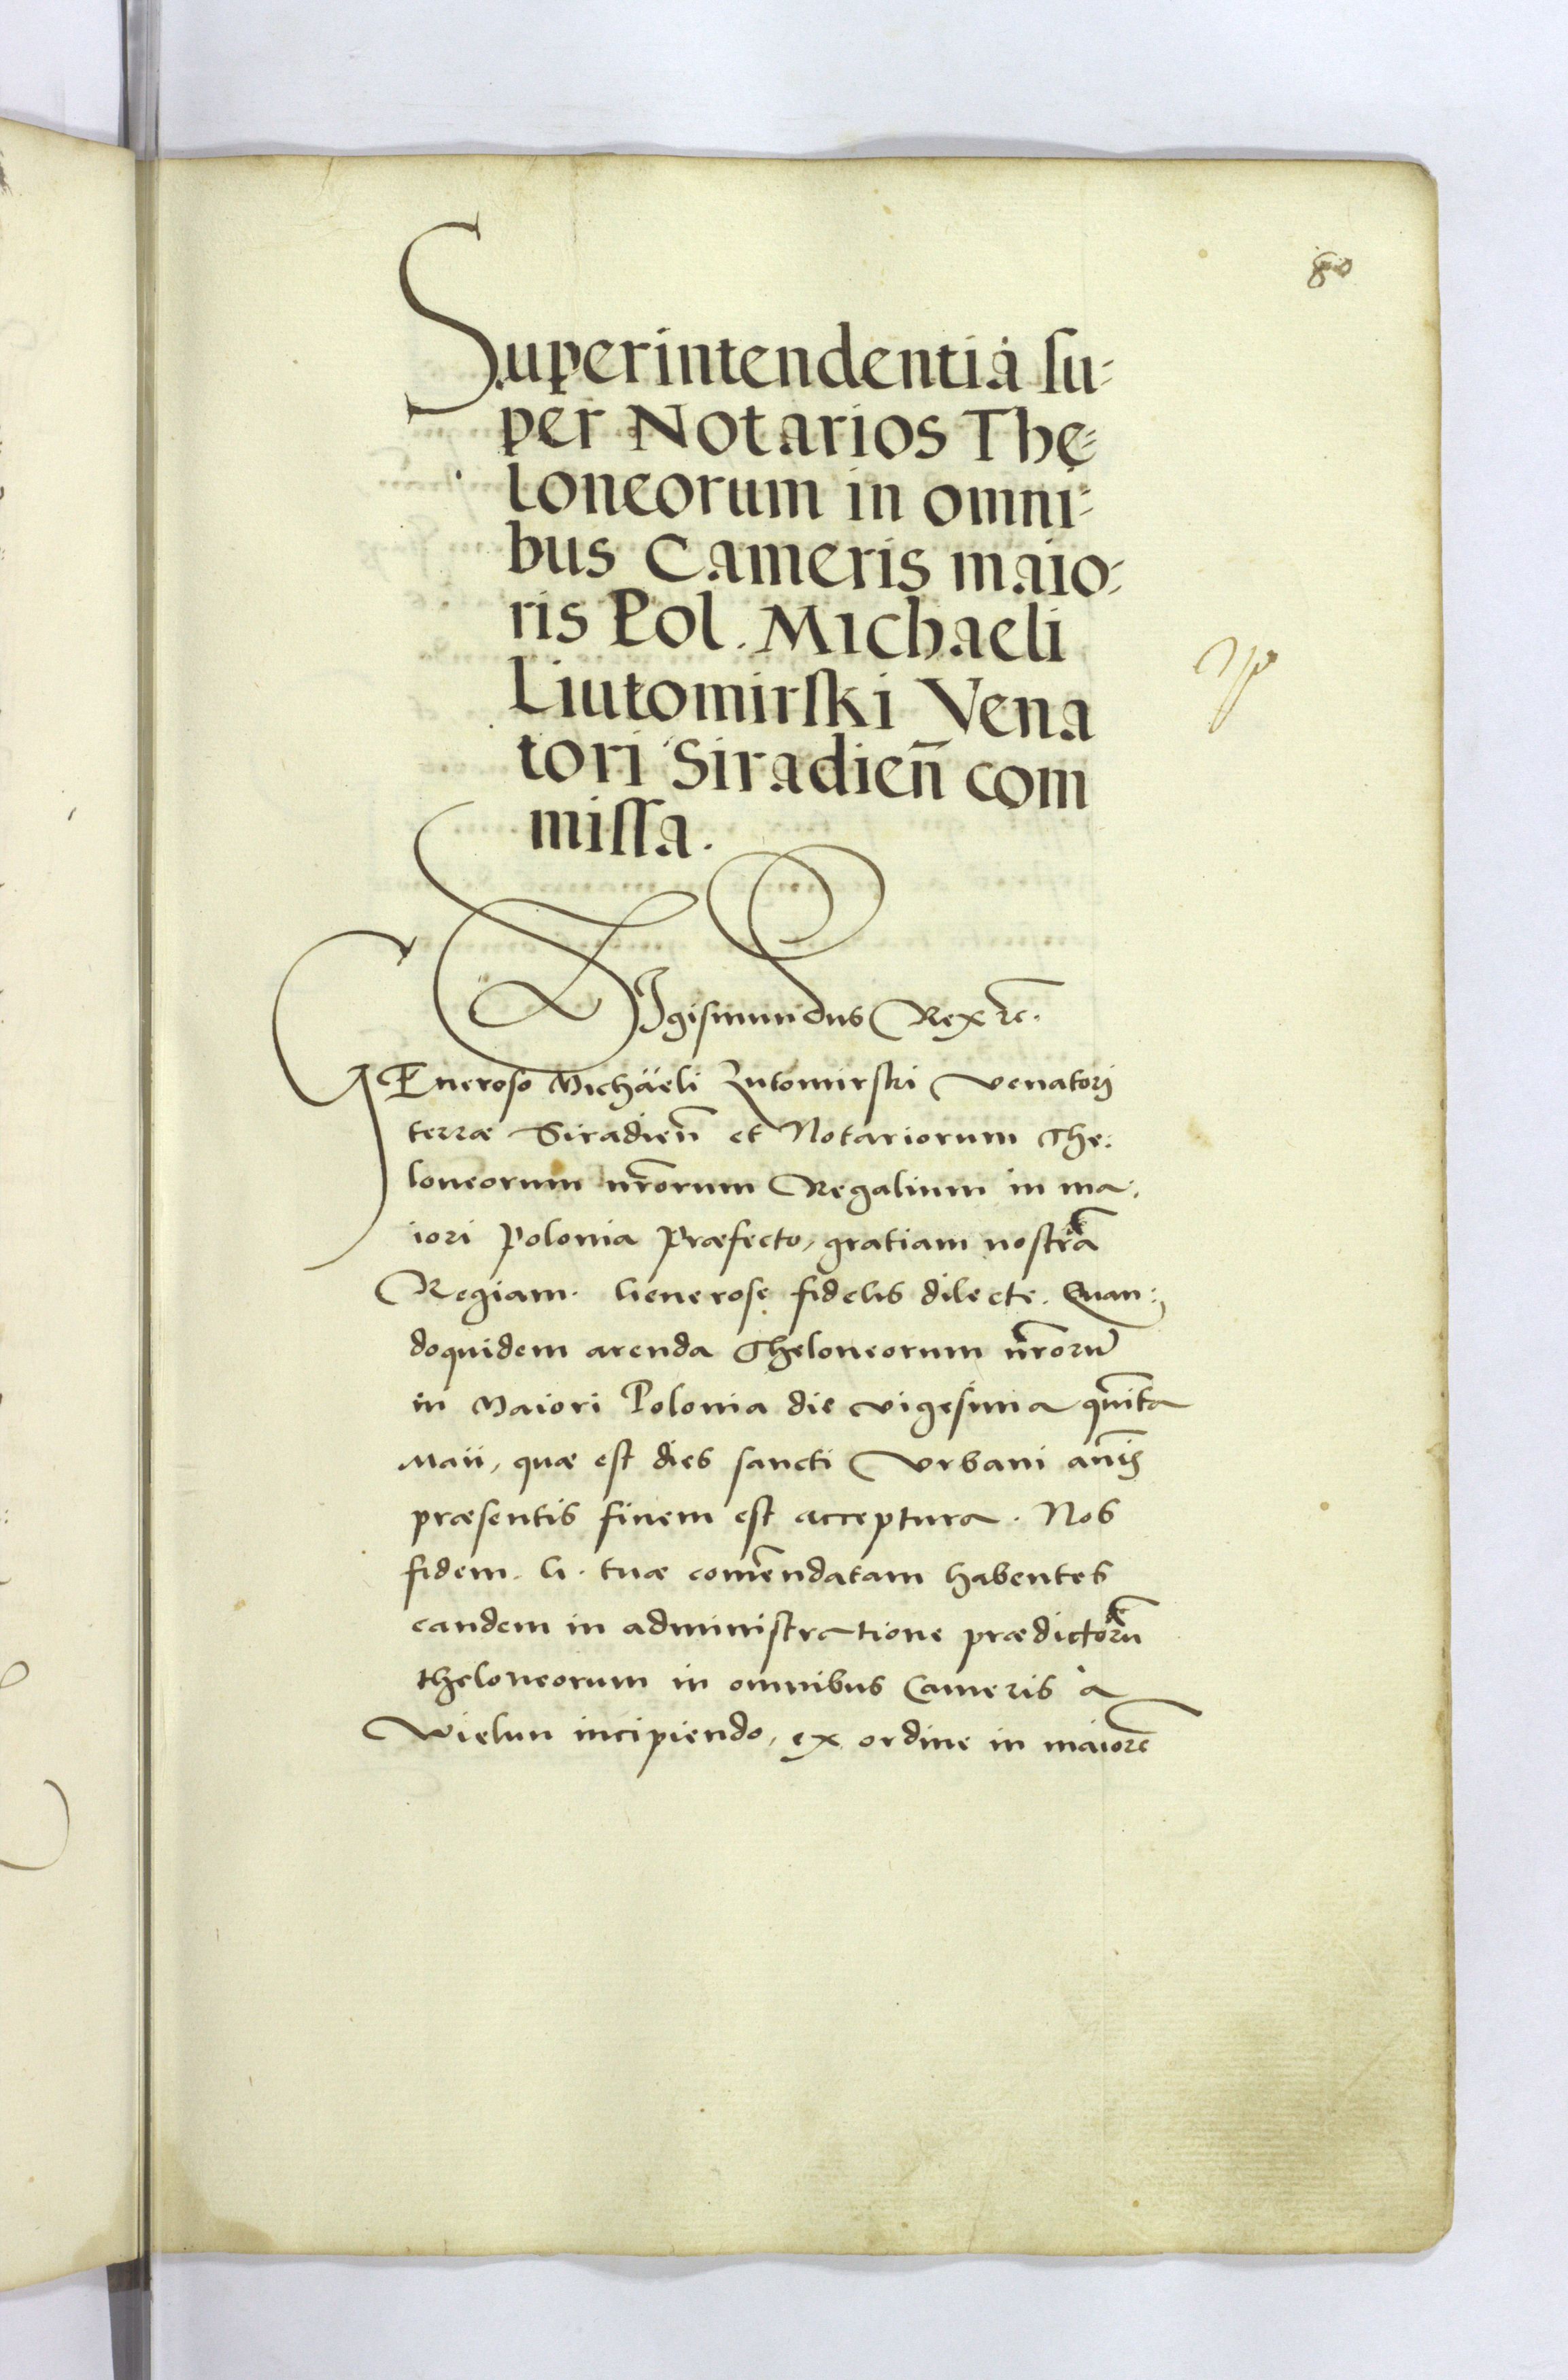 80
Superintendentia su=
per Notarios The=
loneorum in omni=
bus Cameris maio=
ris Pol. Michaeli
Liutomirski Vena
tori Siradien̄ com
missa.
SIgismundus Rex &c.
GEneroso Michaeli Lutomirski Venatori
terræ Siradien̄ et Notariorum The:
loneorum nr̄orum Regalium in ma:
iori Polonia Præfecto, gratiam nostrā
Regiam. Generose fidelis dilecte. Quan:
doquidem arenda Theloneorum nr̄orū
in Maiori Polonia die vigesima quinta
Maii, quæ est dies sancti Vrbani
præsentis finem est acceptura. Nos
fidem. G. tuæ com̄endatam habentes
eandem in administratione prædictorū
theloneorum in omnibus Cameris à
Wielun incipiendo, ex ordine in maiorē